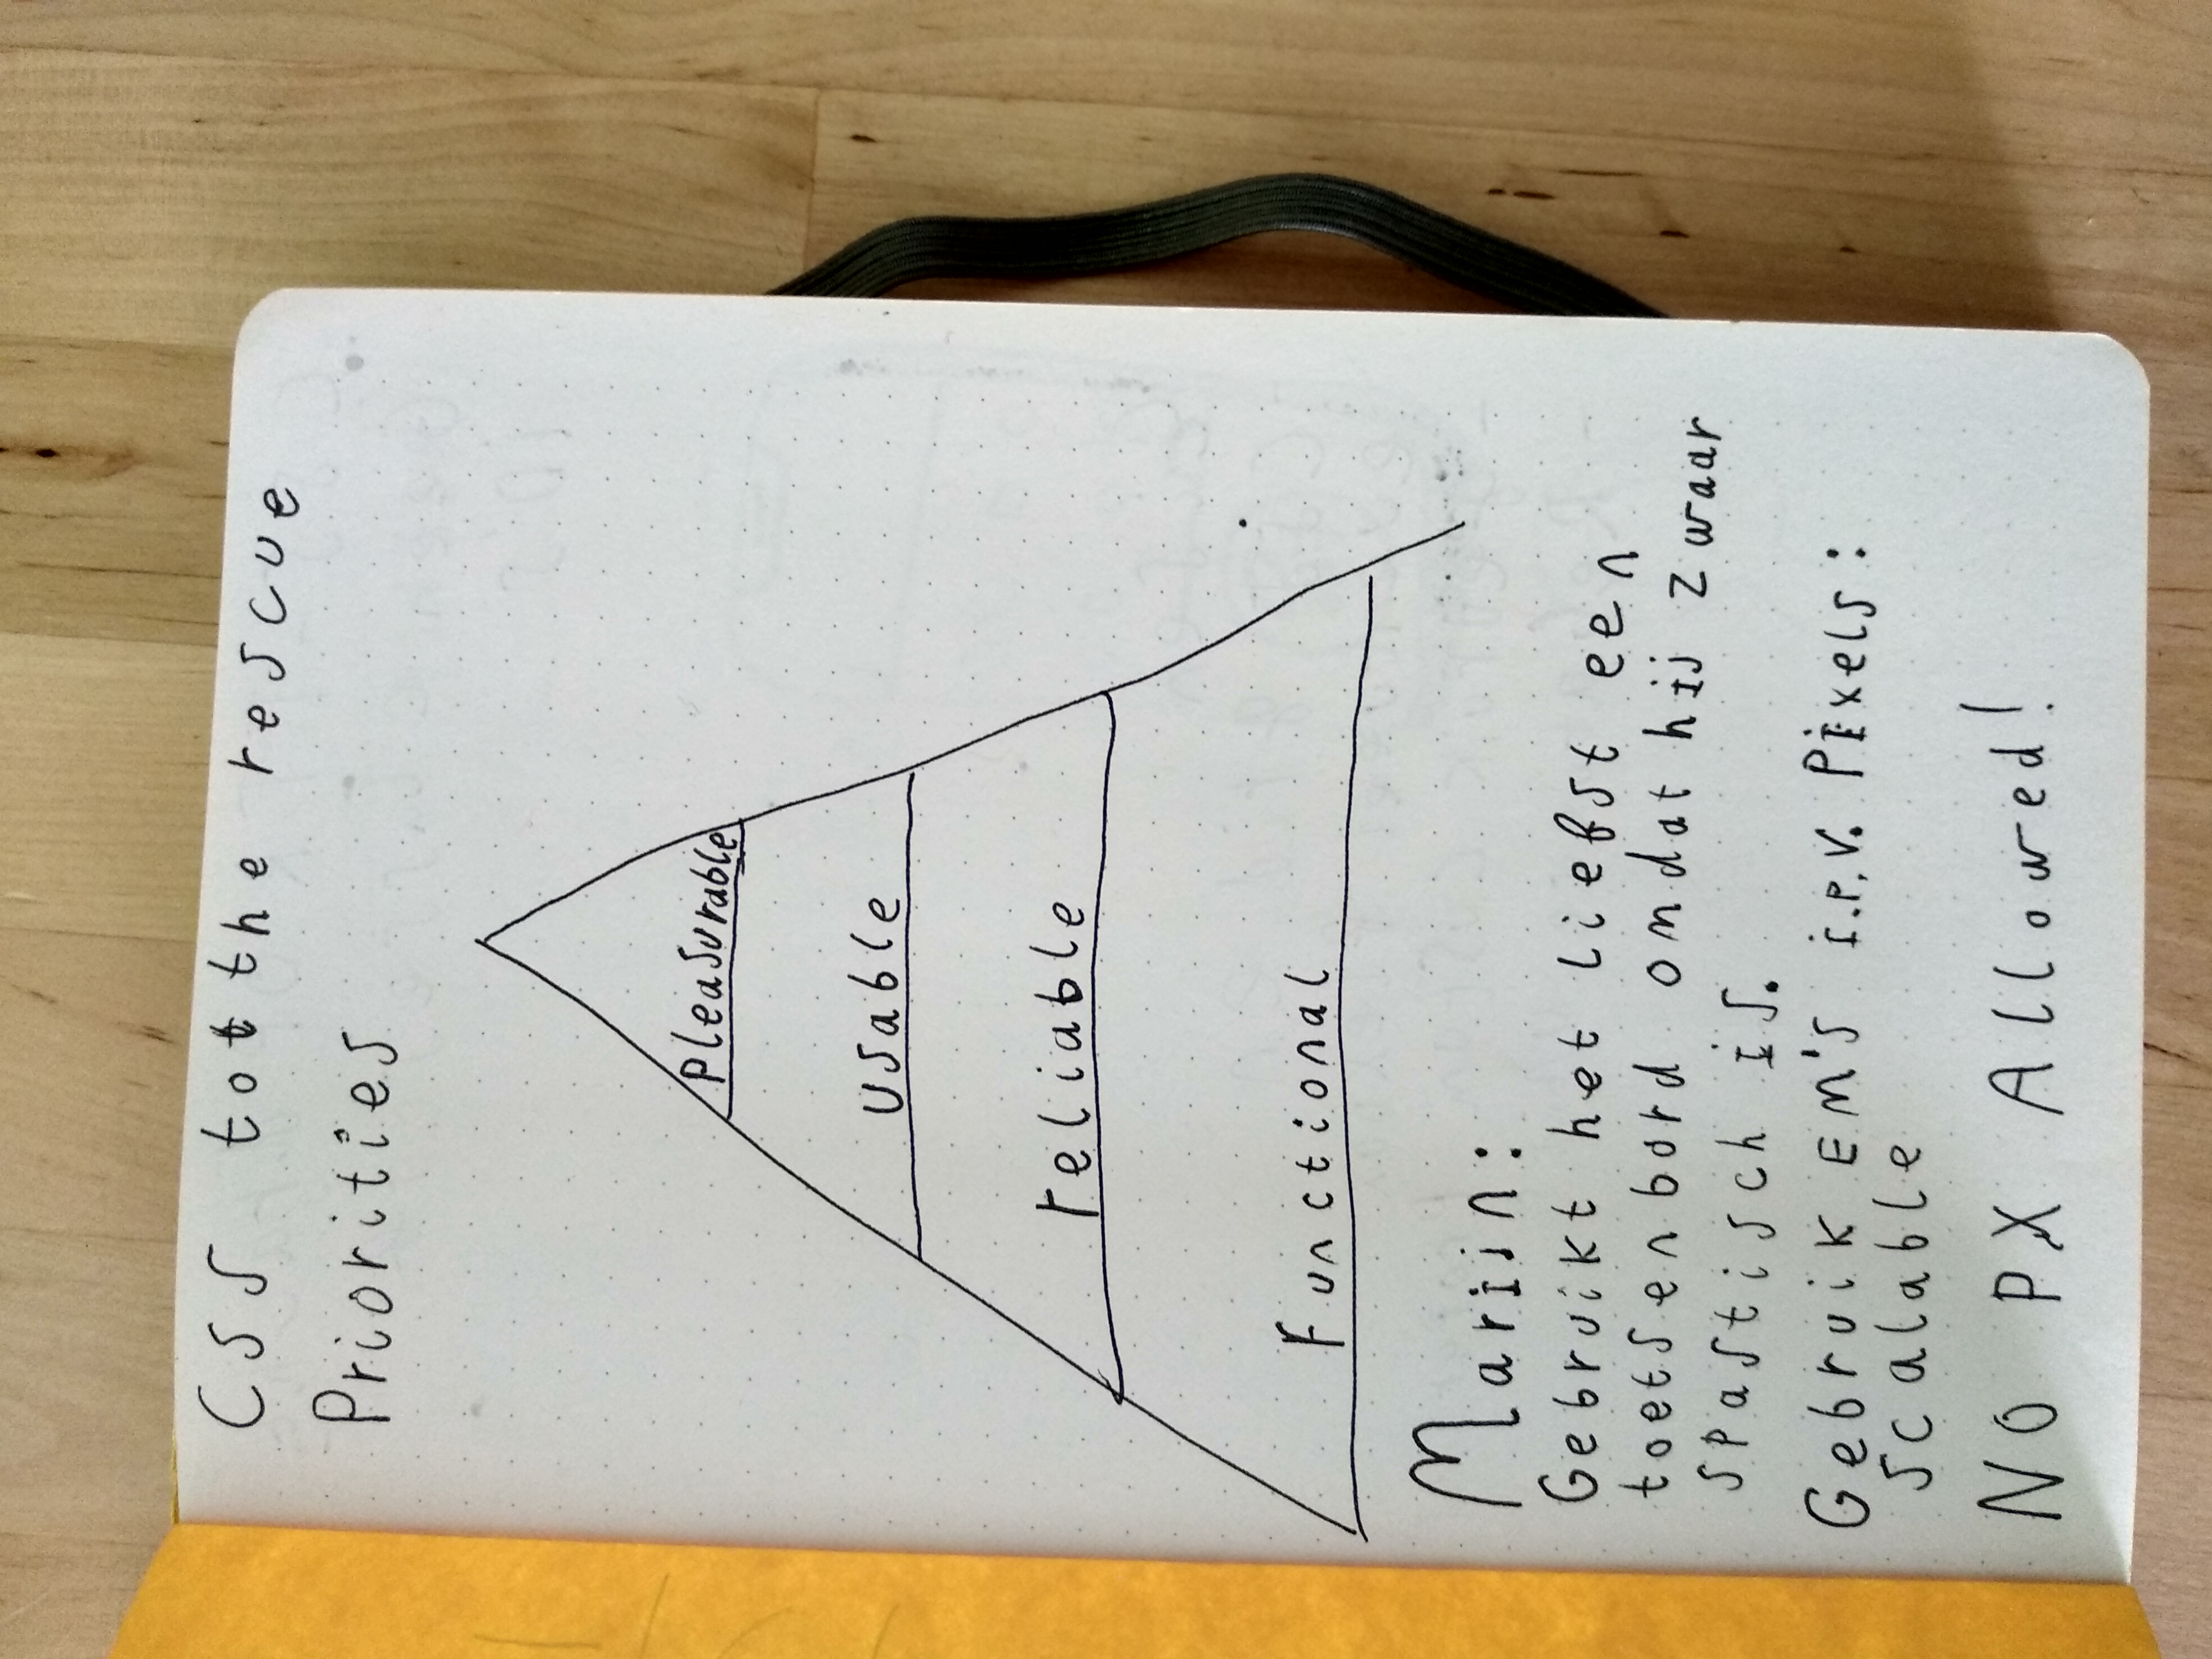 CSS tot the rescue
Priorities
Pleasurable
Usable
reliable
Functional
Marijn:
Gebruikt het liefst een
toetsenbord omdat hij zwaar
spastisch is.
Gebruik EM's i.p.v. Pixels:
scalable
NO PX Allowed!